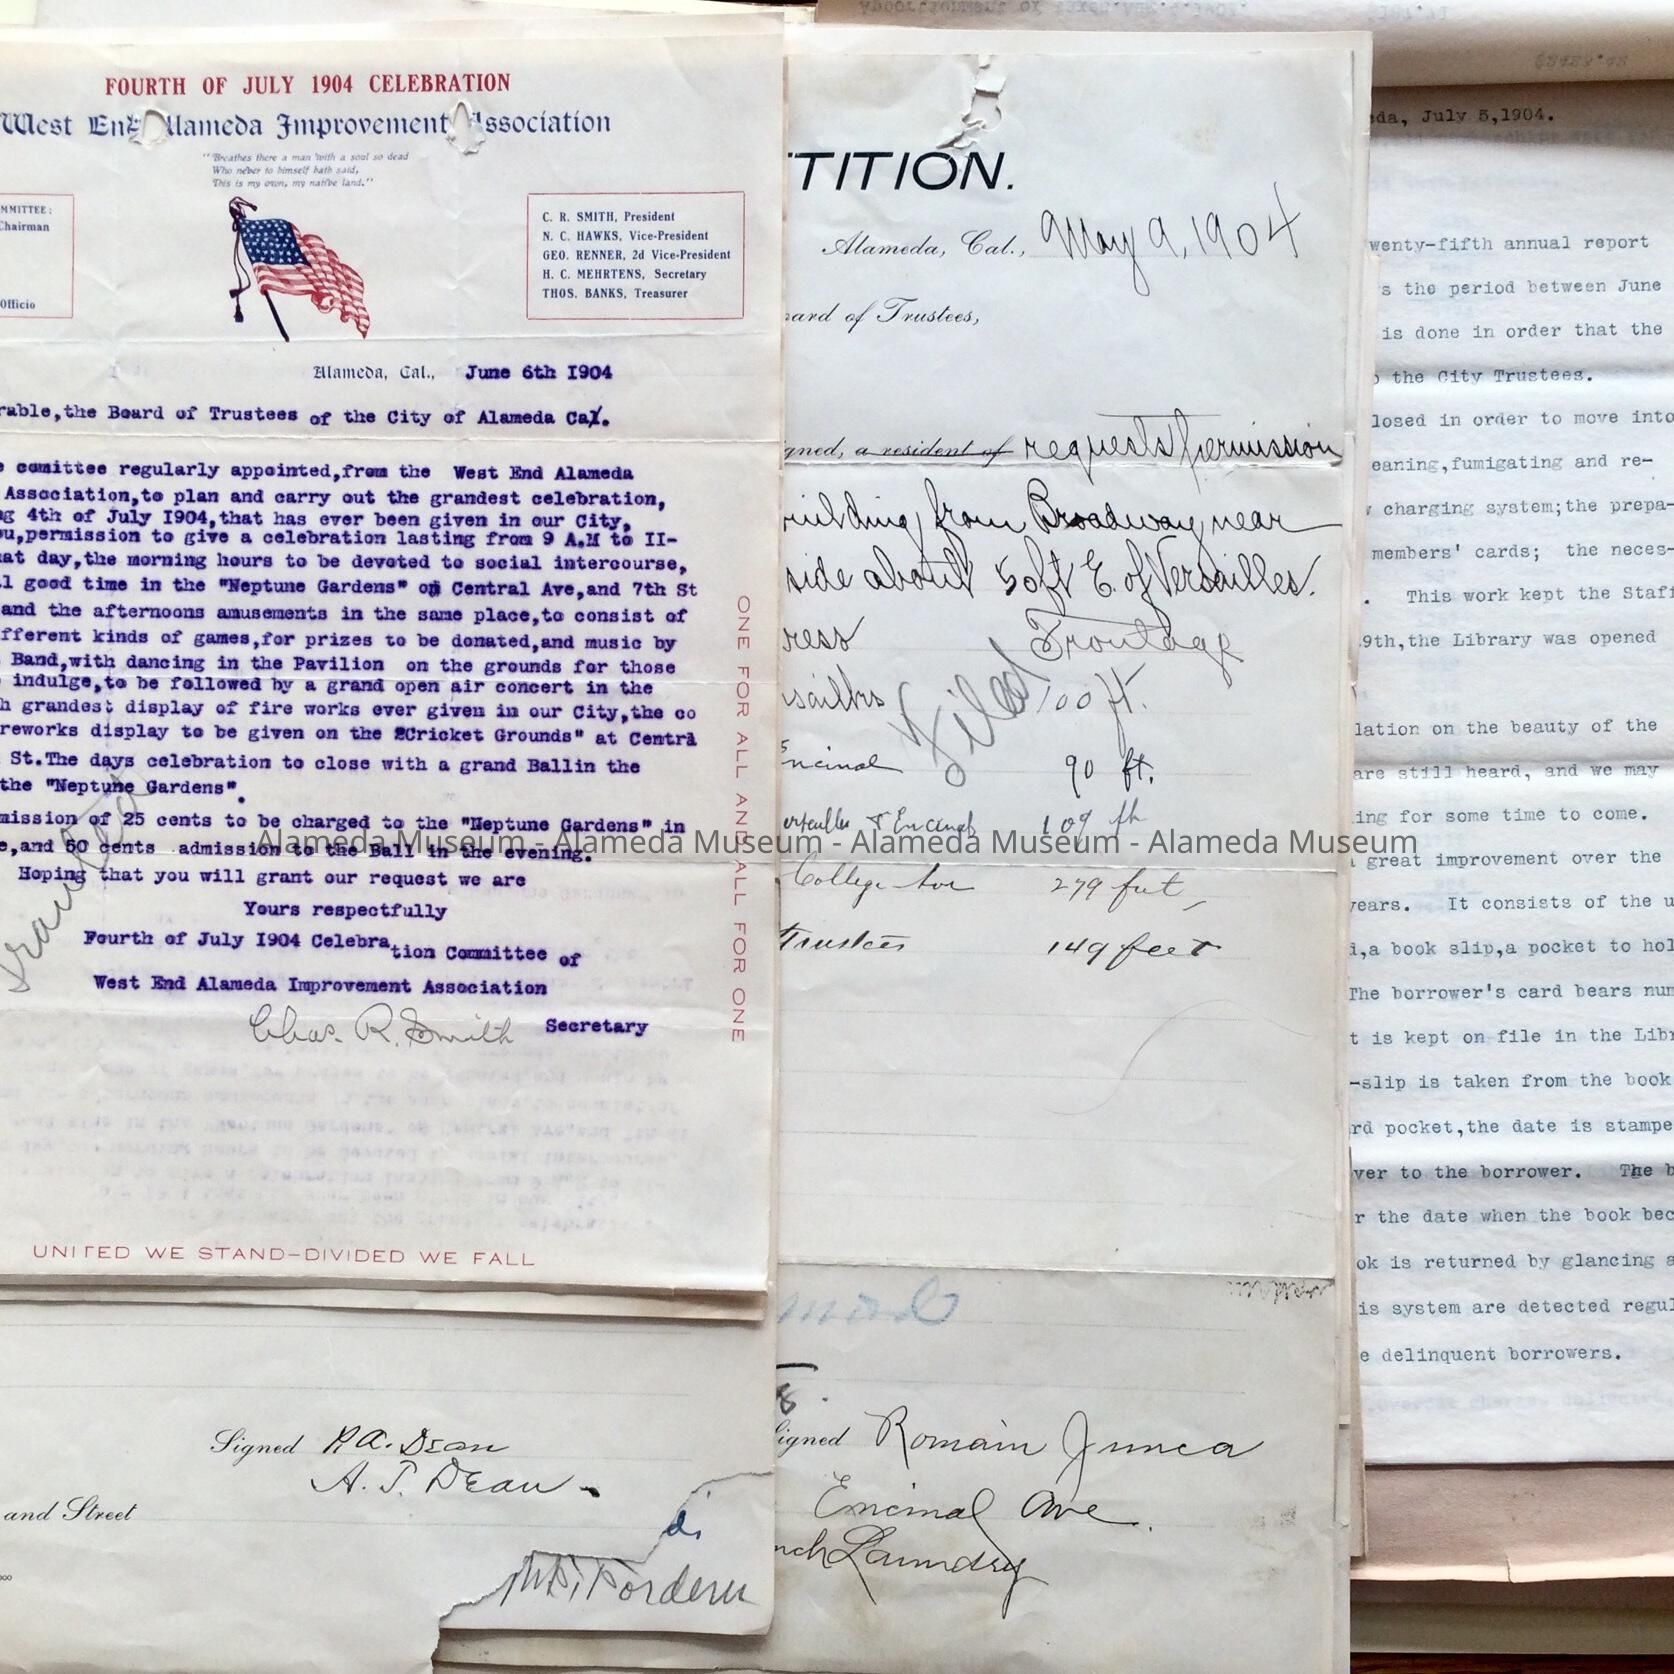 FOURTH OF JULY 1904 CELEBRATION
West End Alameda Improvement Association
"Breathes there a man with a soul so dead
Who never to himself hath said,
This is my own, my native land."
MMITTEE:
Chairman
Officio
C. R. SMITH, President
N. C. HAWKS, Vice-President
GEO. RENNER, 2d Vice-President
H. C. MEHRTENS, Secretary
THOS. BANKS, Treasurer
Alameda, Cal., June 6th 1904
rable,the Board of Trustees of the City of Alameda Cal.
e comittee regularly appointed,from the West End Alameda
Association,to plan and carry out the grandest celebration,
ng 4th of July I904,that has ever been given in our City,
ou,permission to give a celebration lasting from 9 A.M to II-
hat day,the morning hours to be devoted to social intercourse,
l good time in the "Neptune Gardens" on Central Ave,and 7th St
and the afternoons amusements in the same place,to consist of
fferent kinds of games,for prizes to be donated,and music by
Band,with dancing in the Pavilion on the grounds for those
indulge,to be followed by a grand open air concert in the
h grandest display of fire works ever given in our City,the co
reworks display to be given on the "Cricket Grounds" at Centra
St.The days celebration to close with a grand Ballin the
the "Neptune Gardens".
mission of 25 cents to be charged to the "Neptune Gardens" in
e,and 50 cents admission to the Ball in the evening.
Hoping that you will grant our request we are
Yours respectfully
Fourth of July I904 Celebration Committee of
West End Alameda Improvement Association
Chas. R. Smith Secretary
Granted
ONE FOR ALL AND ALL FOR ONE
UNITED WE STAND-DIVIDED WE FALL
Signed R.A. Dean
A. J. Dean
and Street
TITION.
Alameda, Cal., May 9, 1904
oard of Trustees,
gned, a resident of requests permission
building from Broadway near
side about 50 ft E. of Versailles.
ress Frontage
Filed
sailles 100 ft.
Encinal 90 ft.
ersailles & Encinal 109 ft
College Ave 279 feet,
Trustees 149 feet
Signed Romain Junca
Encinal Ave.
nch Laundry
da, July 5,1904.
wenty-fifth annual report
s the period between June
is done in order that the
o the City Trustees.
losed in order to move into
eaning,fumigating and re-
w charging system;the prepa-
members' cards; the neces-
. This work kept the Staff
9th,the Library was opened
lation on the beauty of the
are still heard, and we may
ing for some time to come.
a great improvement over the
years. It consists of the u
d,a book slip,a pocket to hol
The borrower's card bears num
t is kept on file in the Libr
-slip is taken from the book
rd pocket,the date is stampe
ver to the borrower. The b
r the date when the book bec
ok is returned by glancing a
is system are detected regul
e delinquent borrowers.
Alameda Museum - Alameda Museum - Alameda Museum - Alameda Museum